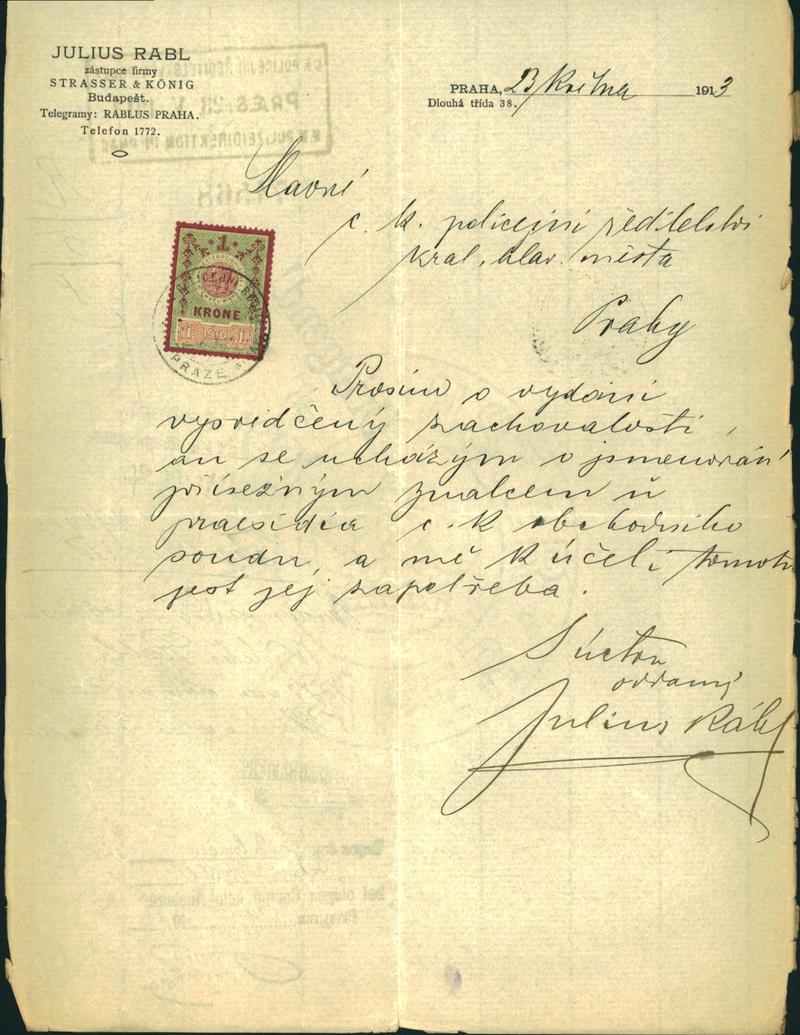 JULIUS RABL
zástupce firmy
STRASSER & KÖNIG
Budapešt.
Telegramy: RABLUS PRAHA.
Telefon 1772.
PRAHA, 23 Května 1913
Dlouhá třída 38.
Slavné
c. k. policejní ředitelství
král. hlav. města
Prahy
1
KRONE
PRAZE
Prosím o vydání
vysvědčený zachovalosti,
an se ucházým o jmenování
přísežným znalcem u
praesidia c. k. obchodního
soudu, a mě k účeli tomuto
jest jej zapotřeba.
S úctou
oddaný
Julius Rábl